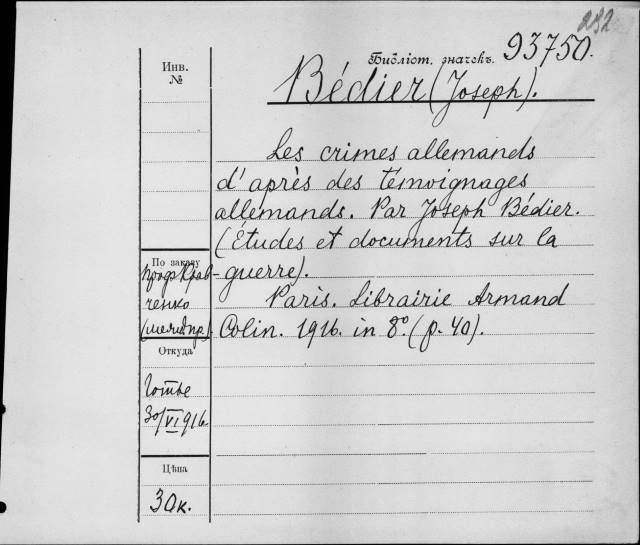 232
Инв.
№
Библіот. значекъ. 93750.
Bédier (Joseph).
Les crimes allemands
d'après des témoignages
allemands. Par Joseph Bédier.
(Études et documents sur la
guerre).
Paris. Librairie Armand
Colin. 1916. in 8º. (p. 40).
По заказу
проф. Крав-
ченко
Откуда
Готье
30/VI 916.
Цѣна
30к.